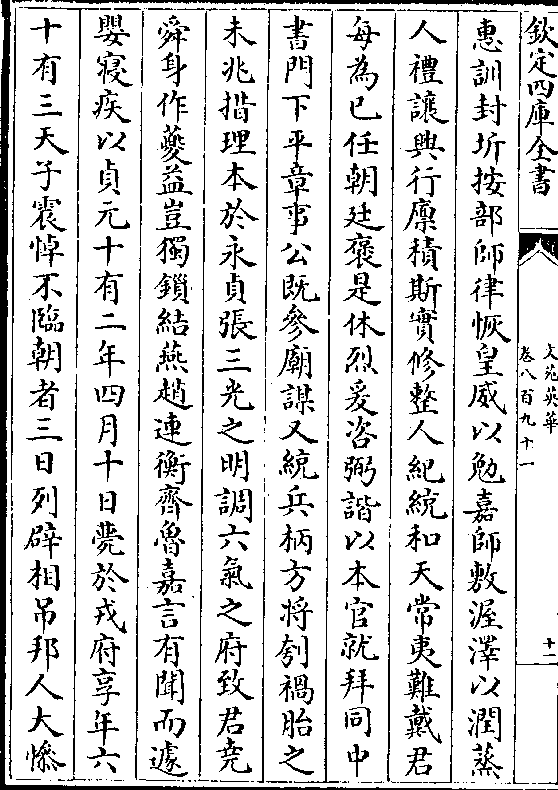 欽定四庫全書
文苑英華
卷八百九十一
十一
惠訓封圻按部師律恢皇威以勉嘉師敷渥澤以潤蒸
人禮讓興行廪積斯實修整人紀統和天常夷難戴君
每為已任朝廷褒是休烈爰咨弼諧以本官就拜同中
書門下平章事公既參廟謀又統兵柄方将刳禍胎之
未兆措理本於永貞張三光之明調六氣之府致君堯
舜身作夔益豈獨鎖結燕趙連衡齊魯嘉言有聞而遽
嬰寢疾以貞元十有二年四月十日薨於戎府享年六
十有三天子震悼不臨朝者三日列辟相吊邦人大慘